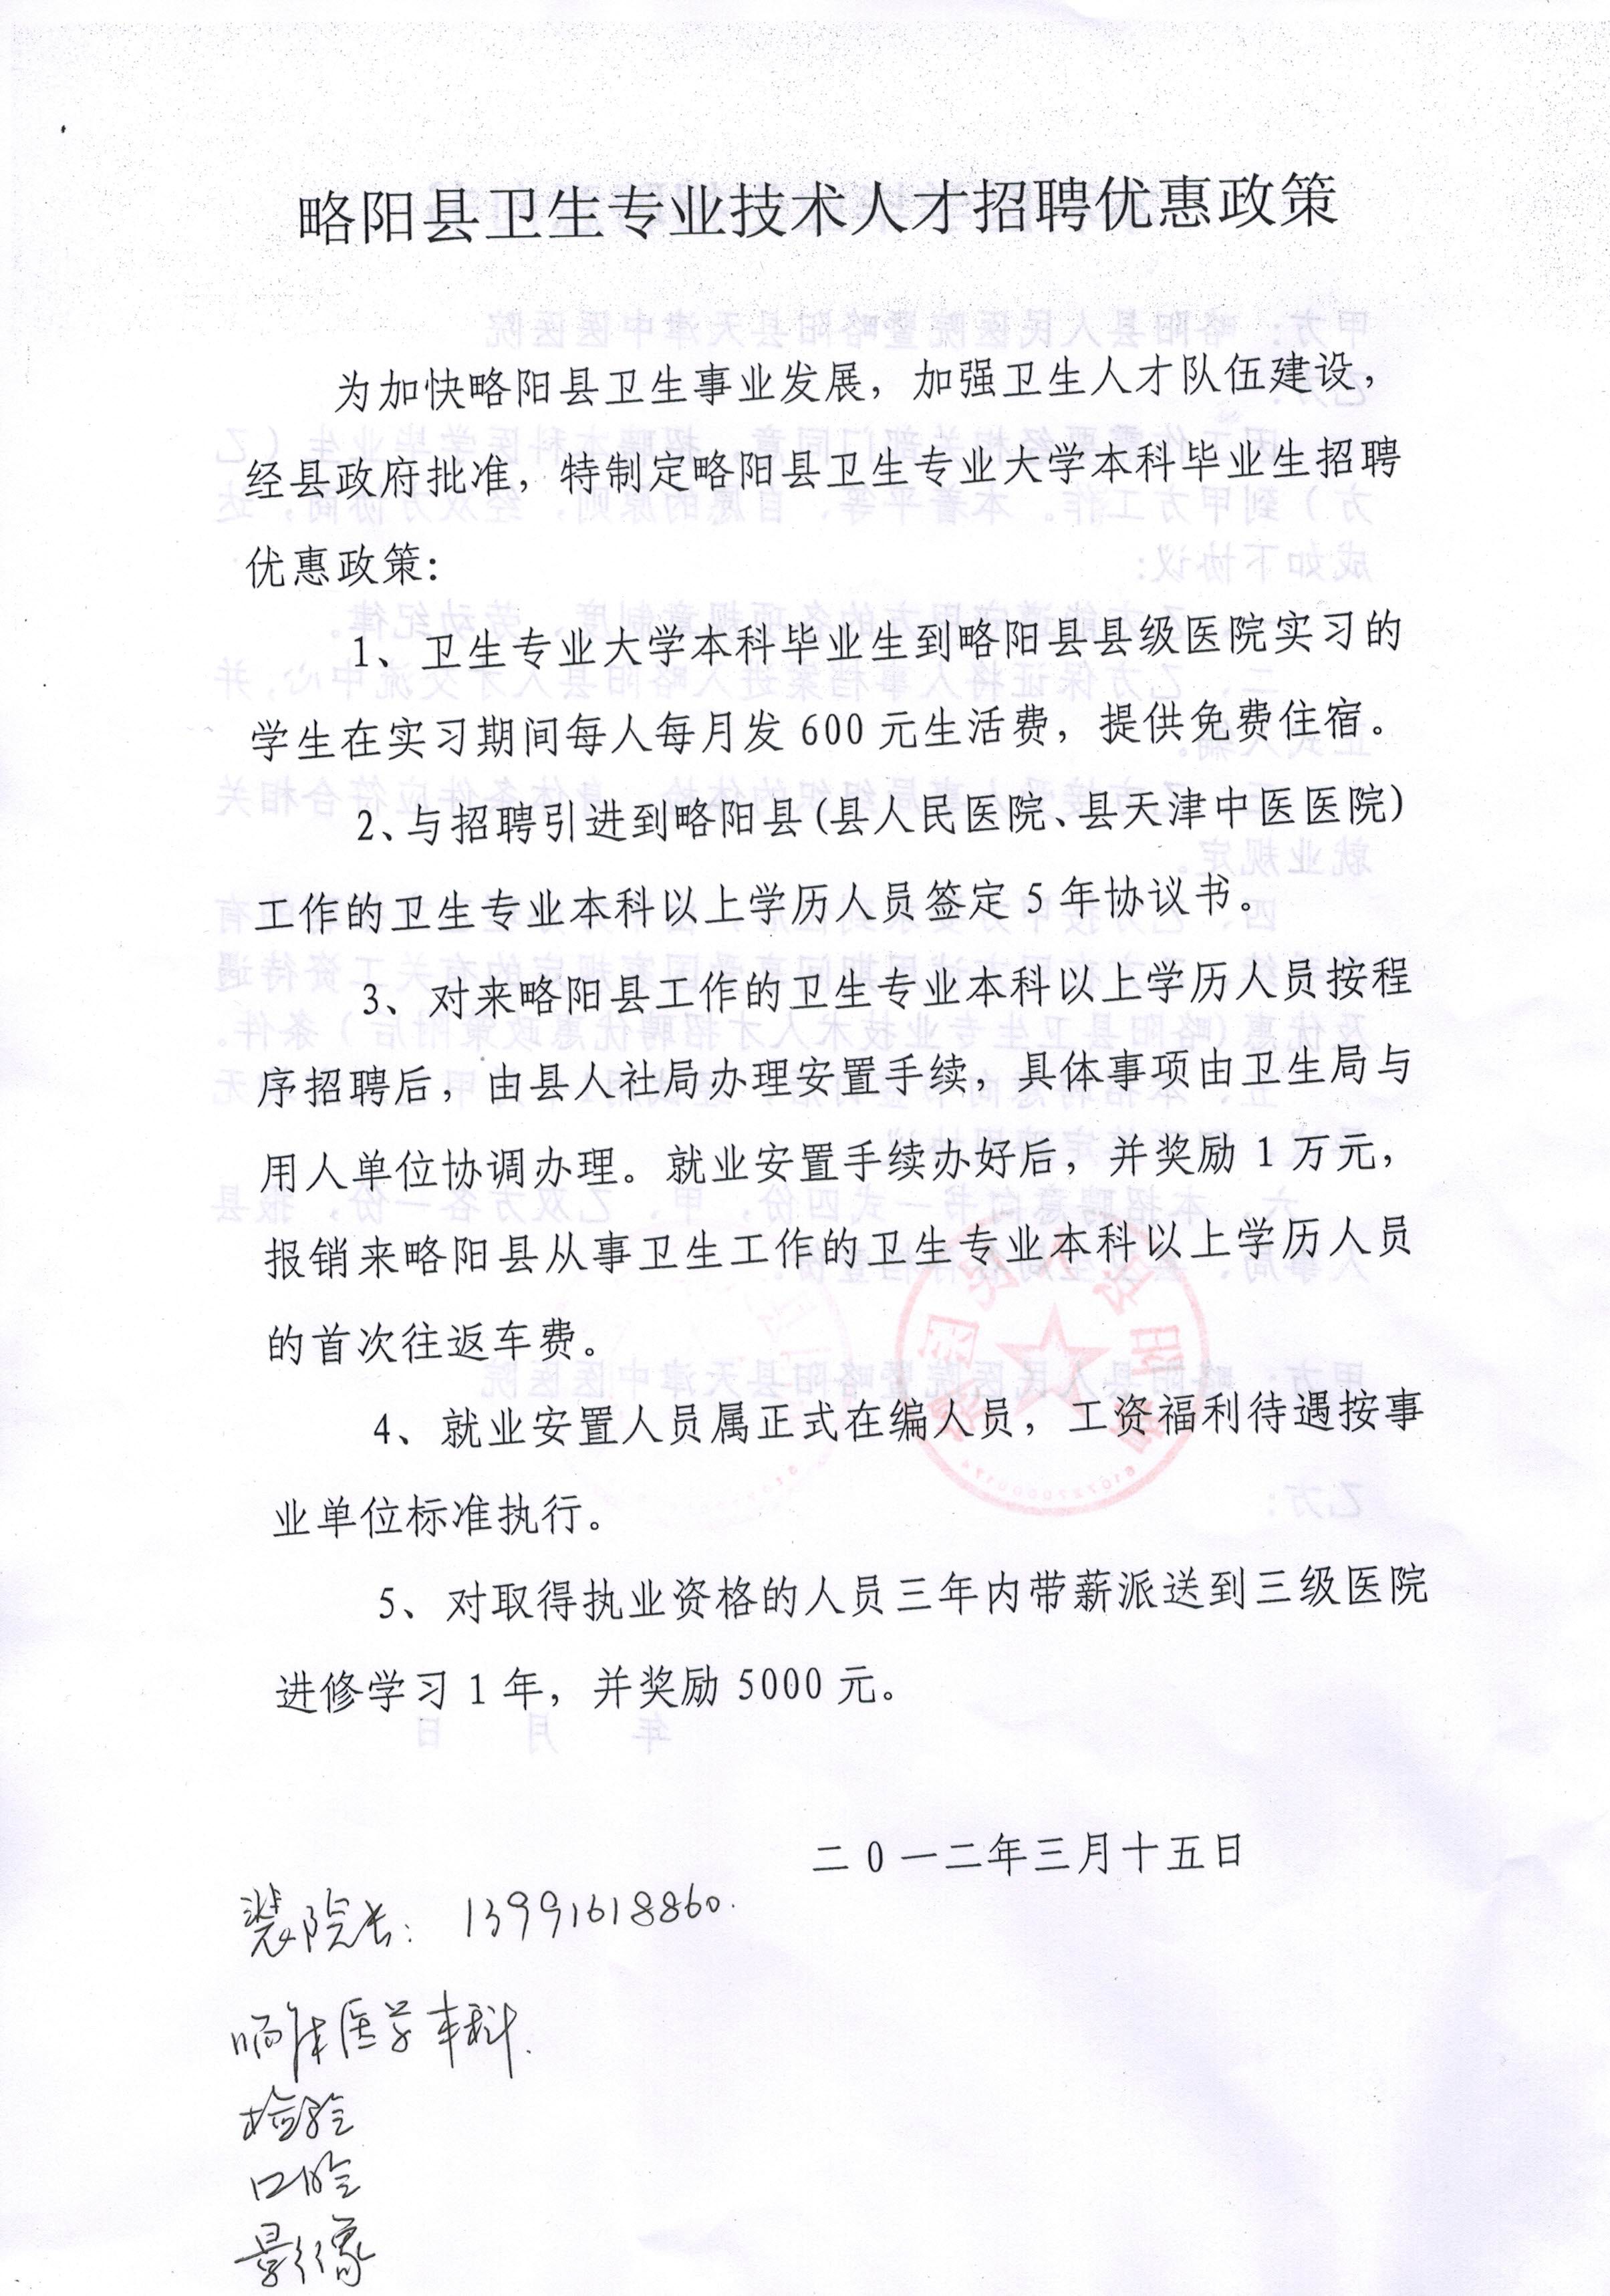 略阳县卫生专业技术人才招聘优惠政策
为加快略阳县卫生事业发展，加强卫生人才队伍建设，
经县政府批准，特制定略阳县卫生专业大学本科毕业生招聘
优惠政策：
1、卫生专业大学本科毕业生到略阳县县级医院实习的
学生在实习期间每人每月发 600 元生活费，提供免费住宿。
2、与招聘引进到略阳县(县人民医院、县天津中医医院)
工作的卫生专业本科以上学历人员签定 5 年协议书。
3、对来略阳县工作的卫生专业本科以上学历人员按程
序招聘后，由县人社局办理安置手续，具体事项由卫生局与
用人单位协调办理。就业安置手续办好后，并奖励 1 万元，
报销来略阳县从事卫生工作的卫生专业本科以上学历人员
的首次往返车费。
4、就业安置人员属正式在编人员，工资福利待遇按事
业单位标准执行。
5、对取得执业资格的人员三年内带薪派送到三级医院
进修学习 1 年，并奖励 5000 元。
二0一二年三月十五日
裴院长: 13991618860.
临床医学本科.
检验
口腔
影像